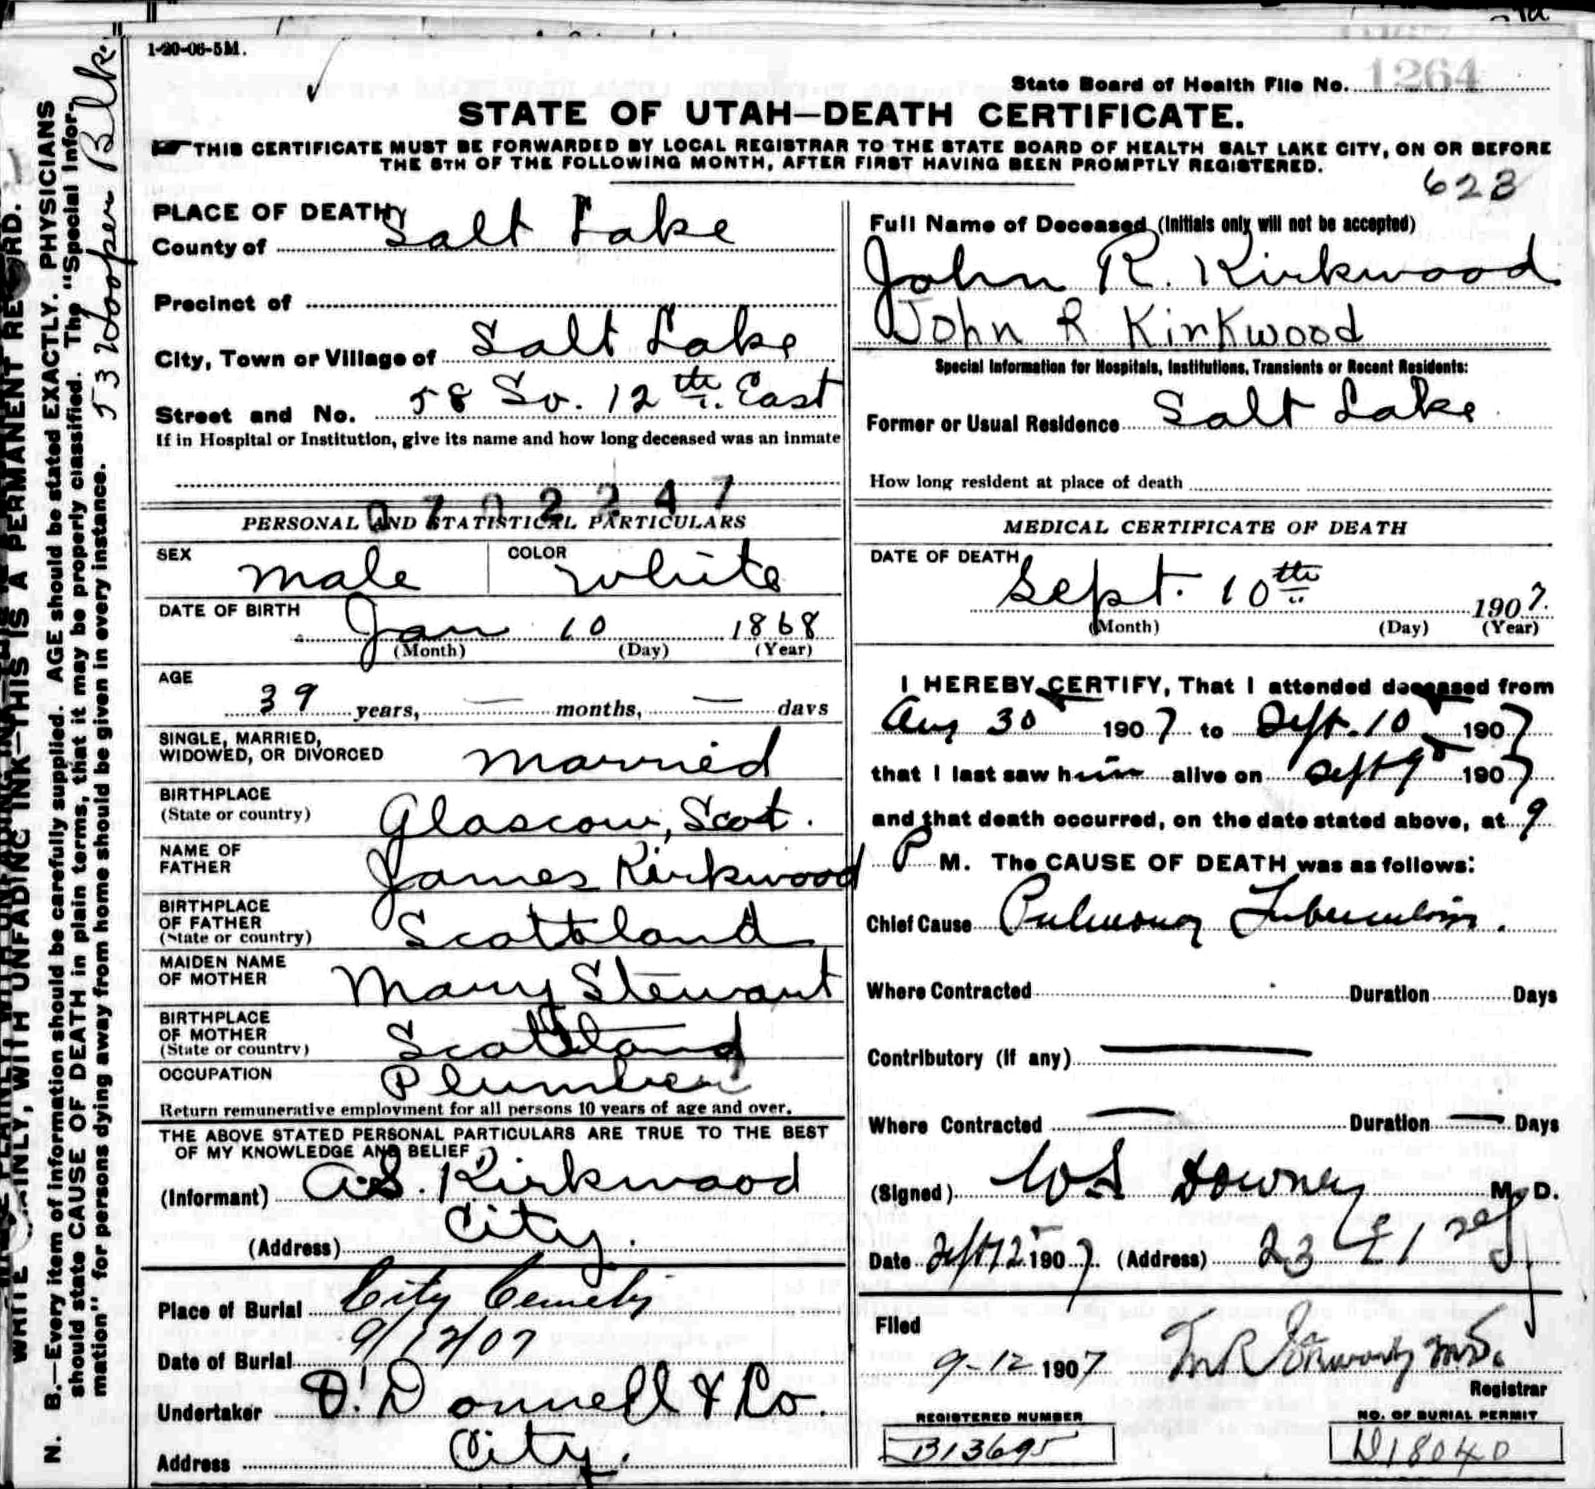 1-20-06-5M.
State Board of Health File No. 1264
STATE OF UTAH—DEATH CERTIFICATE.
THIS CERTIFICATE MUST BE FORWARDED BY LOCAL REGISTRAR TO THE STATE BOARD OF HEALTH SALT LAKE CITY, ON OR BEFORE
THE 5TH OF THE FOLLOWING MONTH, AFTER FIRST HAVING BEEN PROMPTLY REGISTERED.
623
PLACE OF DEATH
County of Salt Lake
Precinct of
City, Town or Village of Salt Lake
Street and No. 58 So. 12th East
If in Hospital or Institution, give its name and how long deceased was an inmate
0702247
PERSONAL AND STATISTICAL PARTICULARS
SEX male COLOR white
DATE OF BIRTH Jan 10 1868
(Month) (Day) (Year)
AGE
39 years, — months, — days
SINGLE, MARRIED,
WIDOWED, OR DIVORCED married
BIRTHPLACE
(State or country) Glascow, Scot.
NAME OF
FATHER James Kirkwood
BIRTHPLACE
OF FATHER
(State or country) Scottland
MAIDEN NAME
OF MOTHER Mary Stewart
BIRTHPLACE
OF MOTHER
(State or country) Scottland
OCCUPATION Plumber
Return remunerative employment for all persons 10 years of age and over.
THE ABOVE STATED PERSONAL PARTICULARS ARE TRUE TO THE BEST
OF MY KNOWLEDGE AND BELIEF
(Informant) A.S. Kirkwood
(Address) City.
Place of Burial City Cemetery
Date of Burial 9/12/07
Undertaker O'Donnell & Co.
Address City.
Full Name of Deceased (Initials only will not be accepted)
John R. Kirkwood
John R Kirkwood
Special Information for Hospitals, Institutions, Transients or Recent Residents:
Former or Usual Residence Salt Lake
How long resident at place of death
MEDICAL CERTIFICATE OF DEATH
DATE OF DEATH Sept. 10th 1907.
(Month) (Day) (Year)
I HEREBY CERTIFY, That I attended deceased from
Aug 30 1907 to Sept. 10 1907
that I last saw him alive on Sept 9 1907
and that death occurred, on the date stated above, at 9
P M. The CAUSE OF DEATH was as follows:
Chief Cause Pulmonary Tuberculosis.
Where Contracted Duration Days
Contributory (if any) —
Where Contracted — Duration — Days
(Signed) W S Downey M. D.
Date Sept 12 1907. (Address) 23 E 1
Filed
9-12 1907 M.D.
Registrar
REGISTERED NUMBER
B13695
NO. OF BURIAL PERMIT
D18040
N. B.—Every item of information should be carefully supplied. AGE should be stated EXACTLY. PHYSICIANS
should state CAUSE OF DEATH in plain terms, that it may be properly classified. The "Special Infor-
mation" for persons dying away from home should be given in every instance.
53 Hooper Blk.
WITH UNFADING INK—THIS IS A PERMANENT RECORD.